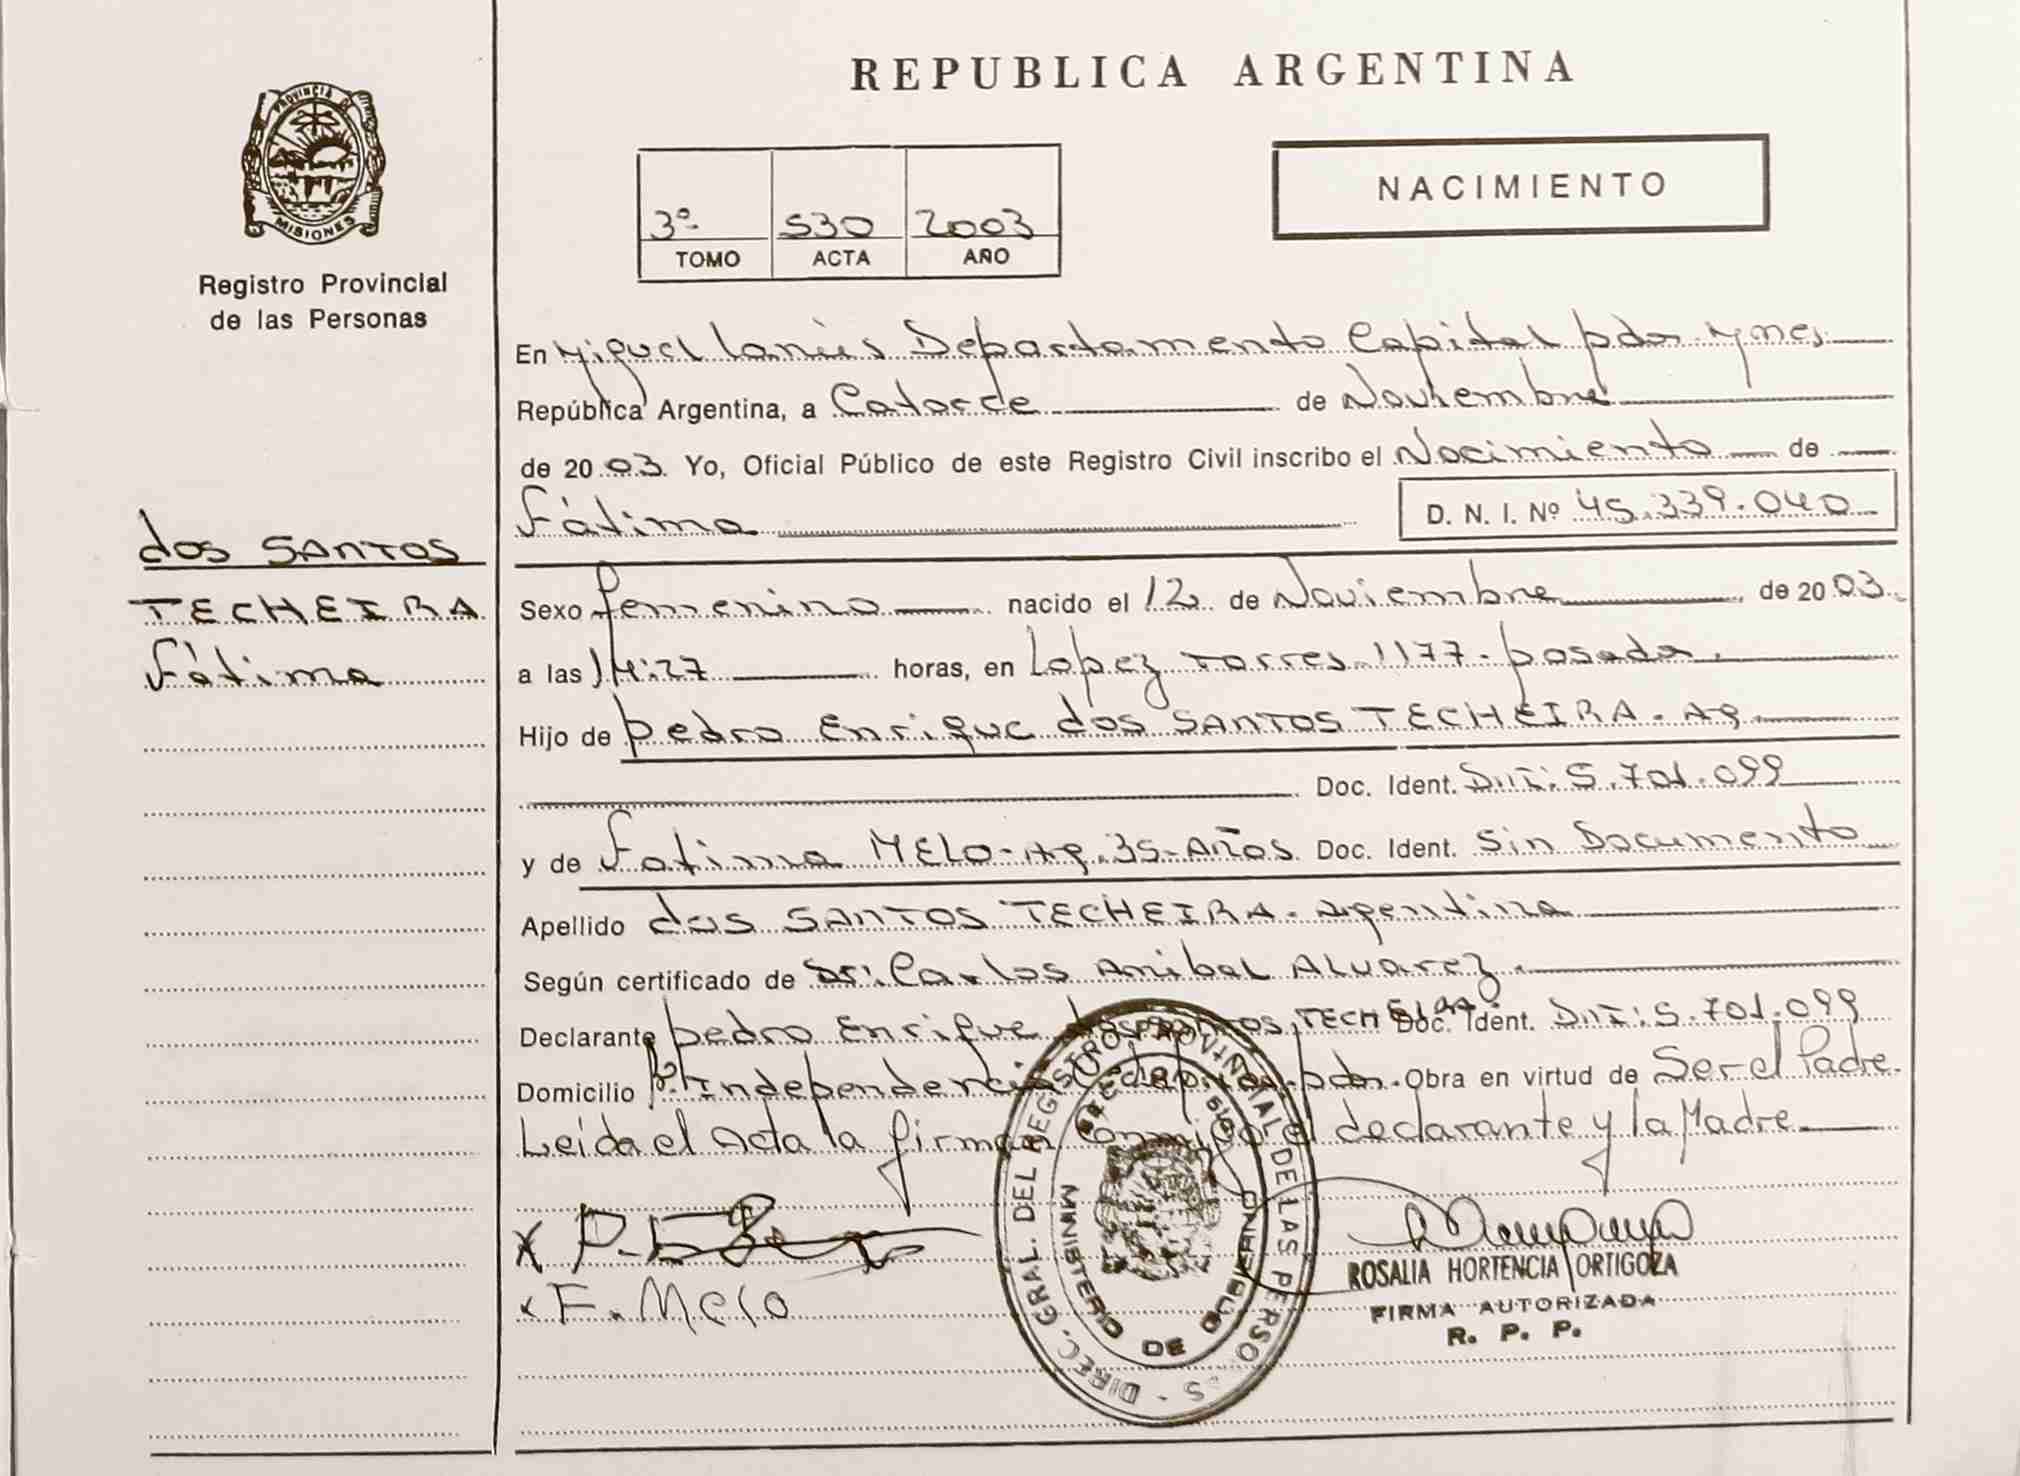 PROVINCIA DE
MISIONES
Registro Provincial
de las Personas
dos SANTOS
TECHEIRA
Fátima
REPUBLICA ARGENTINA
3º 530 2003
TOMO ACTA AÑO
NACIMIENTO
En Miguel Lanús Departamento Capital pdas. Mnes
República Argentina, a Catorce de Noviembre
de 2003. Yo, Oficial Público de este Registro Civil inscribo el Nacimiento de
Fátima D. N. I. Nº 45.339.040
Sexo femenino nacido el 12 de Noviembre de 2003.
a las 14:27 horas, en Lopez Torres 1177- posadas.
Hijo de Pedro Enrique dos SANTOS TECHEIRA. Ag
Doc. Ident. DNI: 5.701.099
y de Fatima MELO-Ag. 35-Años Doc. Ident. Sin Documento
Apellido dos SANTOS TECHEIRA. Argentina
Según certificado de Dr. Carlos Anibal Alvarez.
Declarante Pedro Enrique dos SANTOS TECHEIRA Doc. Ident. DNI: 5.701.099
Domicilio Independencia pdas. Obra en virtud de Ser el Padre.
Leida el Acta la firman conmigo el declarante y la Madre
x P.
x F. Melo
DIREC. GRAL. DEL REGISTRO PROVINCIAL DE LAS PERSONAS
MINISTERIO DE GOBIERNO
ROSALIA HORTENCIA ORTIGOZA
FIRMA AUTORIZADA
R. P. P.